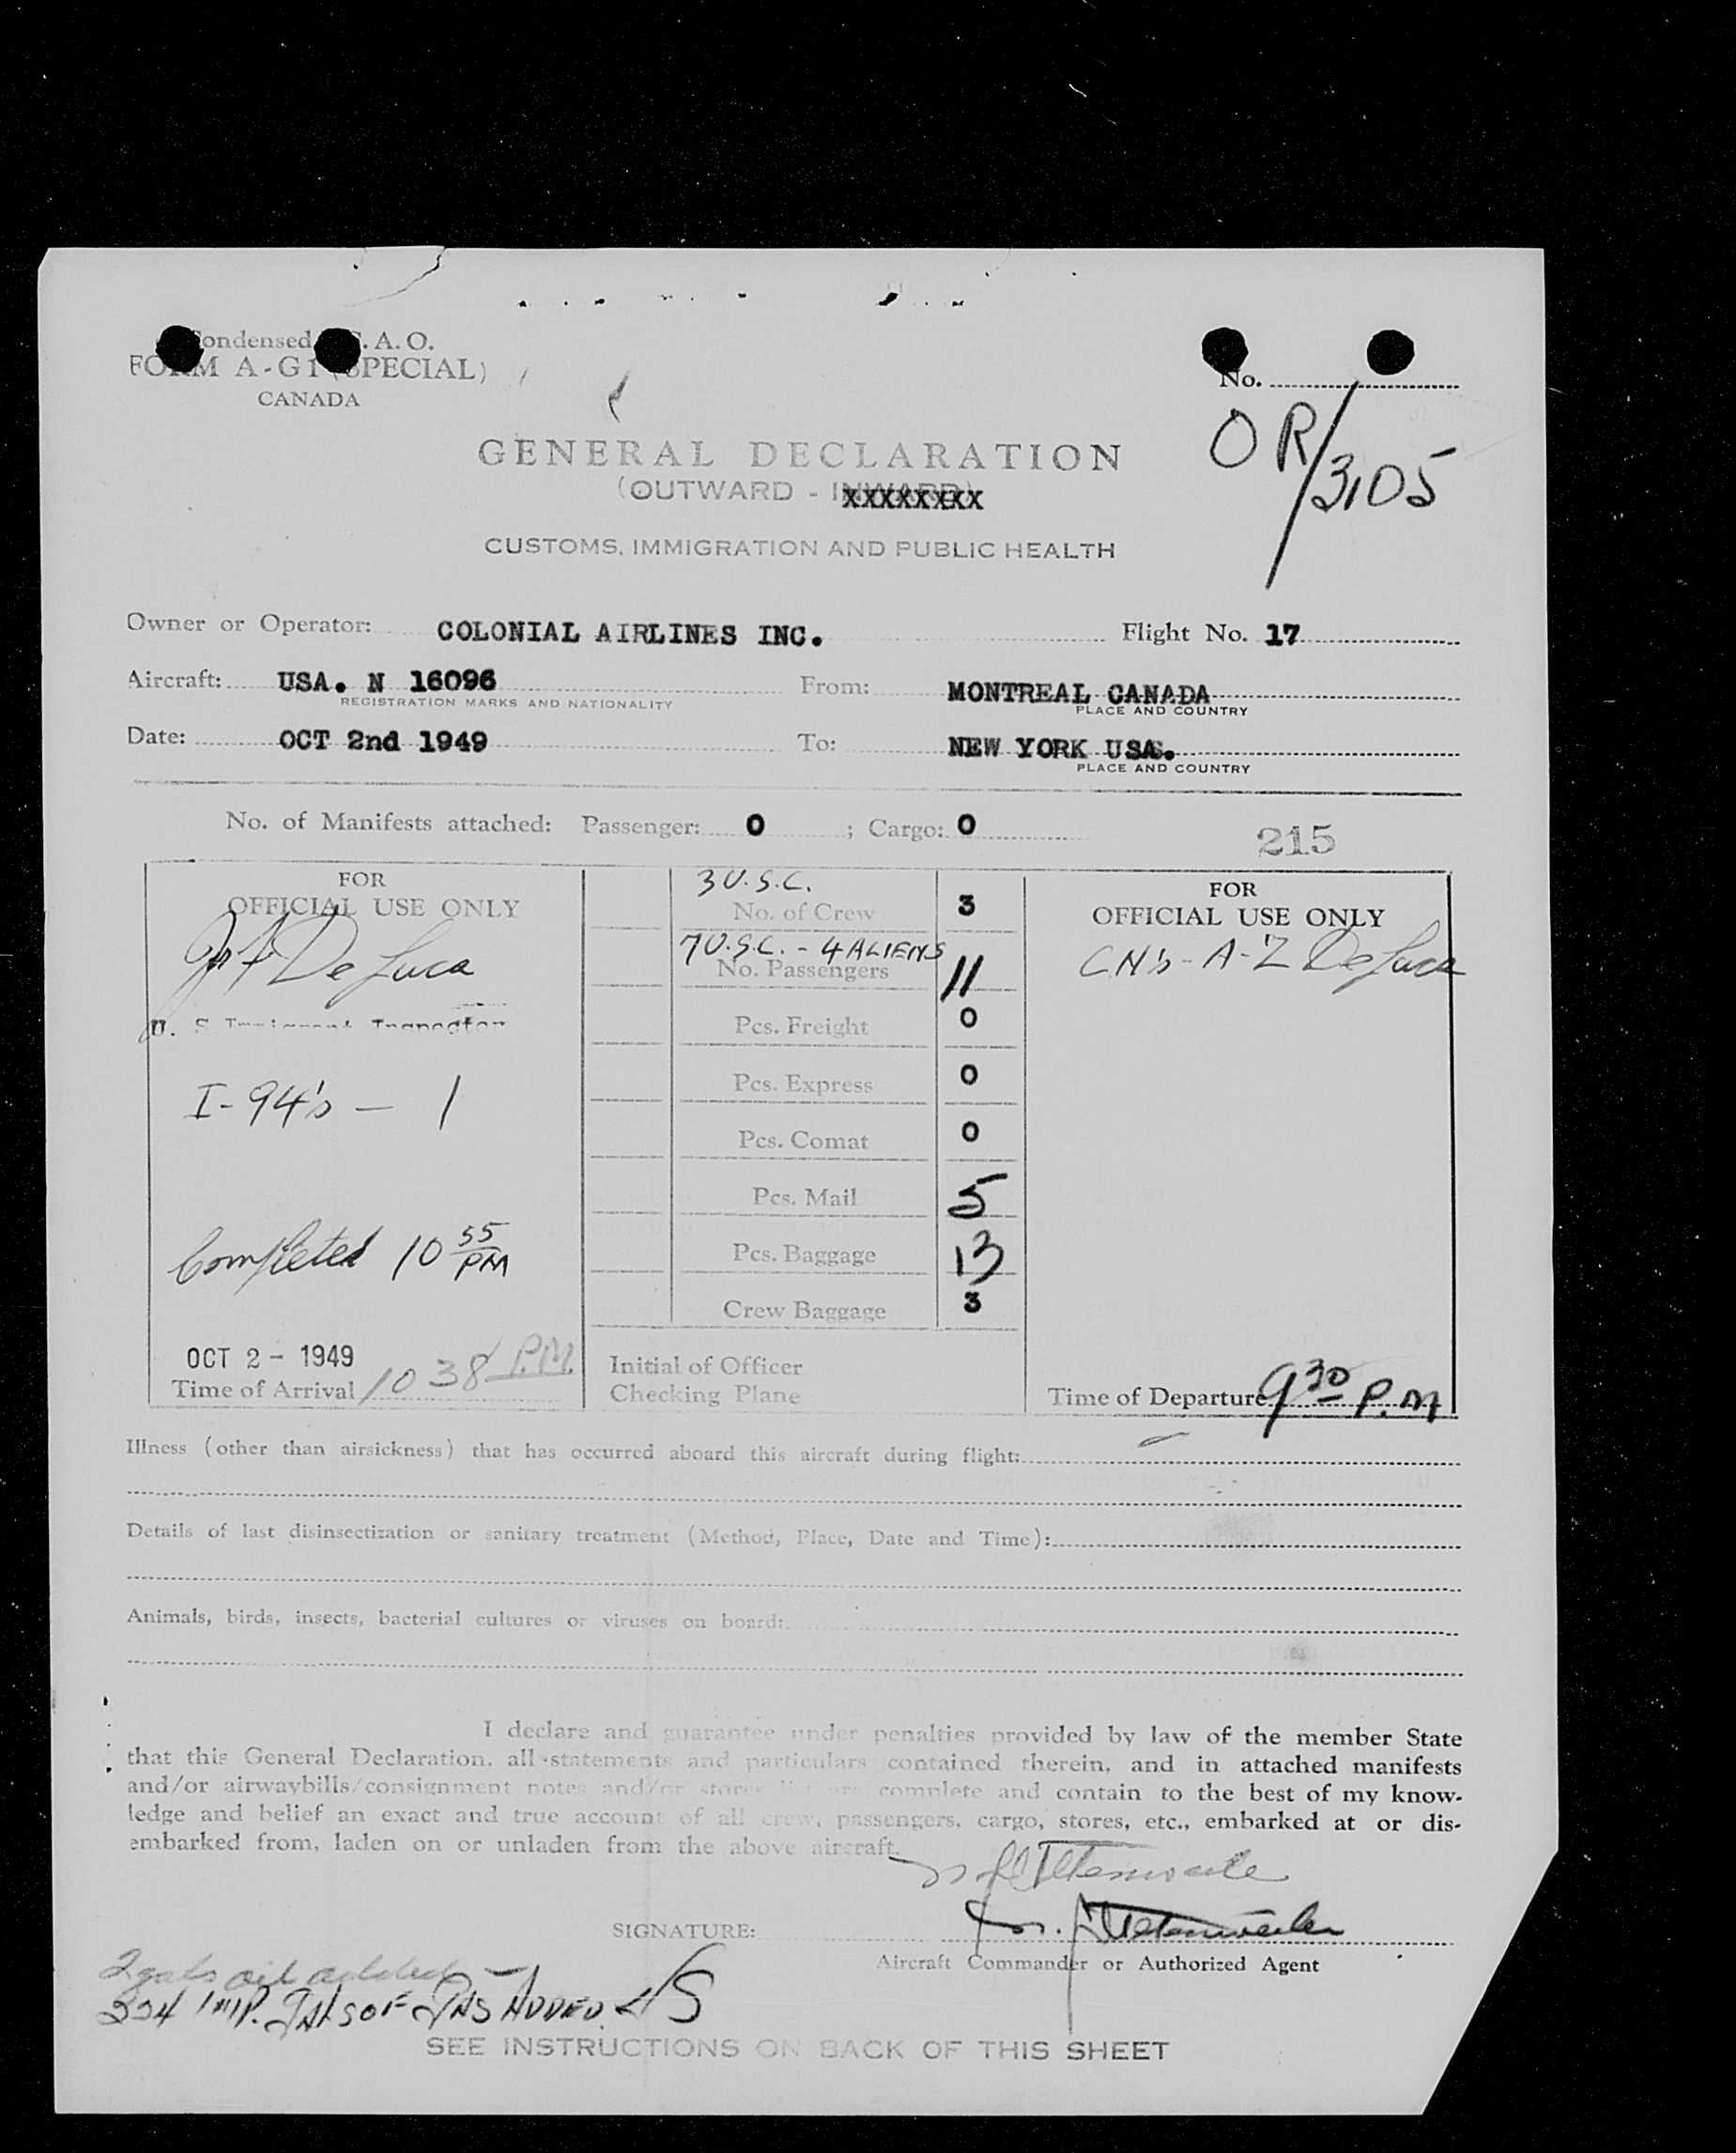 Condensed I.C.A.O.
FORM A-G1 (SPECIAL)
CANADA
No.
OR/3105
GENERAL DECLARATION
(OUTWARD - INWARD)
XXXXXXXX
CUSTOMS, IMMIGRATION AND PUBLIC HEALTH
Owner or Operator: COLONIAL AIRLINES INC. Flight No. 17
Aircraft: USA. N 16096 From: MONTREAL CANADA
REGISTRATION MARKS AND NATIONALITY PLACE AND COUNTRY
Date: OCT 2nd 1949 To: NEW YORK USA.
PLACE AND COUNTRY
No. of Manifests attached: Passenger: 0 ; Cargo: 0
215
FOR
OFFICIAL USE ONLY
De Luca
U. S Immigrant Inspector
I-94's - 1
Completed 10 55 PM
OCT 2 - 1949
Time of Arrival 10 38 P.M.
3 U.S.C.
No. of Crew 3
7 U.S.C. - 4 ALIENS
No. Passengers 11
Pcs. Freight 0
Pcs. Express 0
Pcs. Comat 0
Pcs. Mail 5
Pcs. Baggage 13
Crew Baggage 3
Initial of Officer
Checking Plane
FOR
OFFICIAL USE ONLY
CN's - A-Z De Luca
Time of Departure 9 30 P.M
Illness (other than airsickness) that has occurred aboard this aircraft during flight:
Details of last disinsectization or sanitary treatment (Method, Place, Date and Time):
Animals, birds, insects, bacterial cultures or viruses on board:
I declare and guarantee under penalties provided by law of the member State
that this General Declaration, all statements and particulars contained therein, and in attached manifests
and/or airwaybills/consignment notes and/or stores list are complete and contain to the best of my know-
ledge and belief an exact and true account of all crew, passengers, cargo, stores, etc., embarked at or dis-
embarked from, laden on or unladen from the above aircraft.
SIGNATURE:
Aircraft Commander or Authorized Agent
2 gals oil added
334 IMP. GALS OF GAS ADDED
SEE INSTRUCTIONS ON BACK OF THIS SHEET